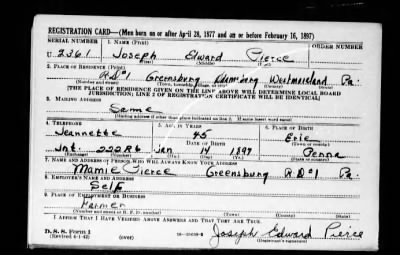 REGISTRATION CARD—(Men born on or after April 28, 1877 and on or before February 16, 1897)
SERIAL NUMBER 1. NAME (Print) ORDER NUMBER
U 2361 Joseph Edward Pierce
(First) (Middle) (Last)
2. PLACE OF RESIDENCE (Print)
R.D.#1 Greensburg Westmoreland Pa.
(Number and street) (Town, township, village, or city) (County) (State)
[THE PLACE OF RESIDENCE GIVEN ON THE LINE ABOVE WILL DETERMINE LOCAL BOARD
JURISDICTION; LINE 2 OF REGISTRATION CERTIFICATE WILL BE IDENTICAL]
3. MAILING ADDRESS
Same
(Mailing address if other than place indicated on line 2. If same insert word same)
4. TELEPHONE 5. AGE IN YEARS 6. PLACE OF BIRTH
Jeannette 45 Erie
DATE OF BIRTH (Town or county)
Jnt. 222R6 Jan 14 1897 Penna
(Exchange) (Number) (Mo.) (Day) (Yr.) (State or country)
7. NAME AND ADDRESS OF PERSON WHO WILL ALWAYS KNOW YOUR ADDRESS
Mamie Pierce Greensburg R.D#1 Pa.
8. EMPLOYER'S NAME AND ADDRESS
Self
9. PLACE OF EMPLOYMENT OR BUSINESS
Farmer
(Number and street or R. F. D. number) (Town) (County) (State)
I AFFIRM THAT I HAVE VERIFIED ABOVE ANSWERS AND THAT THEY ARE TRUE.
D. S. S. Form 1
(Revised 4-1-42) (over) Joseph Edward Pierce
(Registrant's signature)